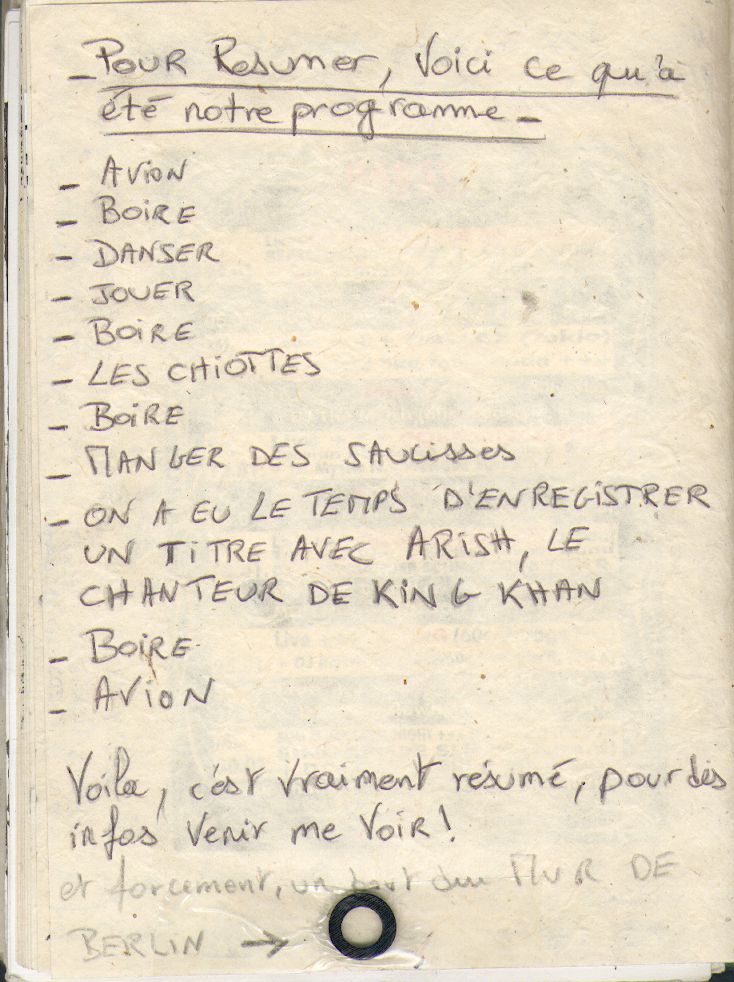 - Pour Resumer, Voici ce qu'a
été notre programme -
- AVION
- BOIRE
- DANSER
- JOUER
- BOIRE
- LES CHIOTTES
- BOIRE
- MANGER DES SAUCISSES
- ON A EU LE TEMPS D'ENREGISTRER
UN TITRE AVEC ARISH, LE
CHANTEUR DE KING KHAN
- BOIRE
- AVION
Voila, c'est vraiment résumé, pour des
infos venir me voir!
et forcement, un bout du MUR DE
BERLIN →